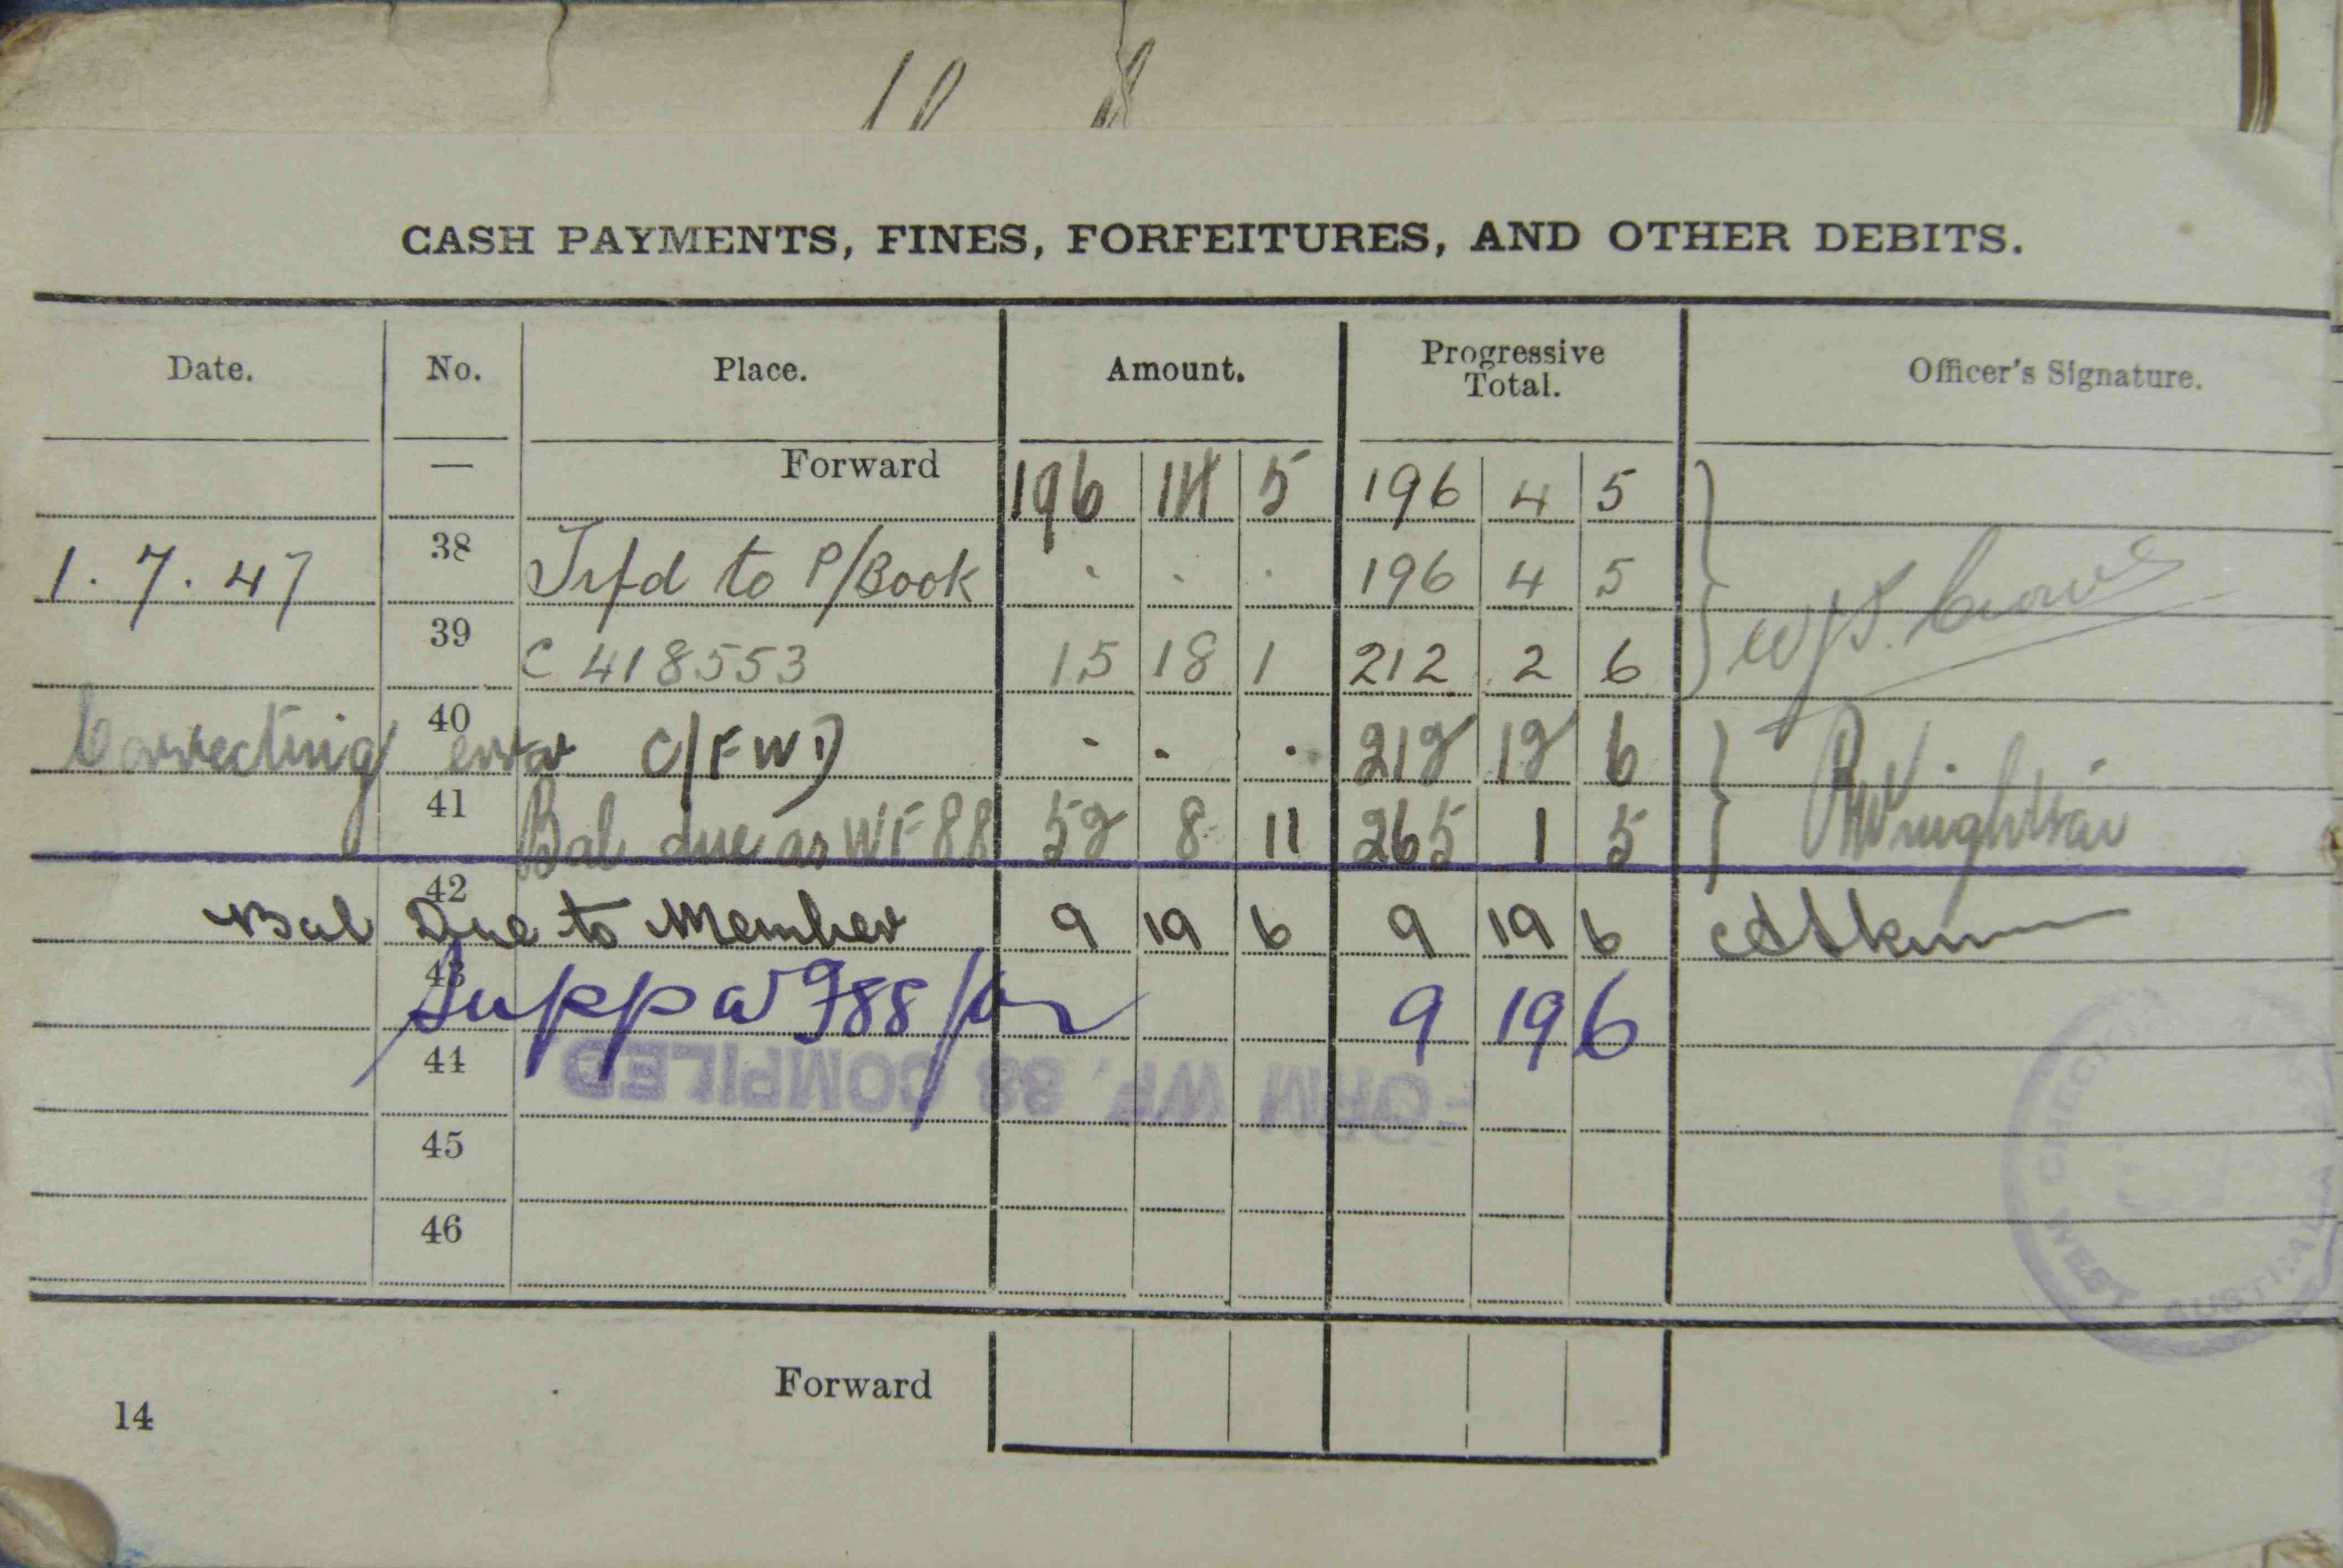 CASH PAYMENTS, FINES, FORFEITURES, AND OTHER DEBITS.
Date. No. Place. Amount. Progressive Total. Officer's Signature.
— Forward 196 14 5 196 4 5
1.7.47 38 Trfd to P/Book . . . 196 4 5
39 C 418553 15 18 1 212 2 6
40 Correcting error C/FWD . . . 212 12 6
41 Bal due as WF 88 52 8 11 265 1 5
42 Bal Due to Member 9 19 6 9 19 6
43 Supp 9 19 6
44
FORM WF. 88 COMPILED
45
46
WEST AUSTRALIA
Forward
14